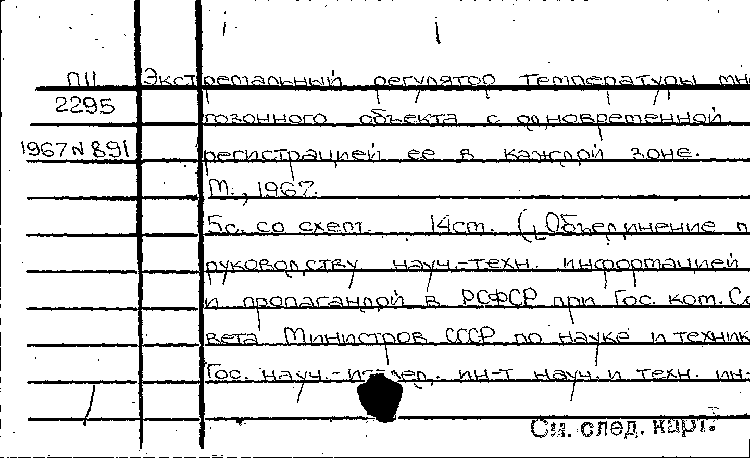 П11 Экстремальный регулятор температуры мно
2295 гозонного объекта с одновременной
1967 N 891 регистрацией ее в каждой зоне.
М., 1967.
5с. со схем. 14см. (Объединение п
руководству науч.-техн. информацией
и пропагандой в РСФСР при Гос. ком. Со
вета Министров СССР по науке и техник
Гос. науч.- ин-т науч. и техн. ин-
См. след. карт.